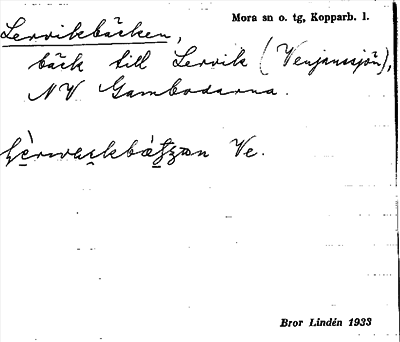 Mora sn o. tg, Kopparb. l.
Lervikbäcken,
bäck till Lervik (Venjanssjön),
NV Gambodarna.
Ve.
Bror Lindén 1933